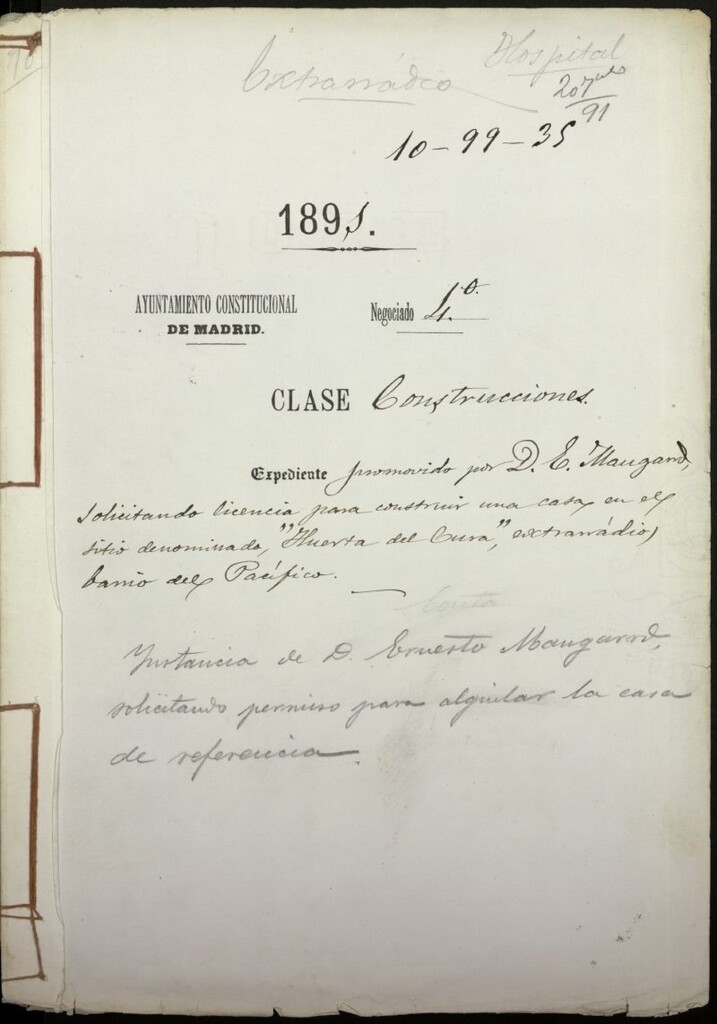 Extrarrádio
Hospital
91
10-99-35
1891.
AYUNTAMIENTO CONSTITUCIONAL
DE MADRID.
Negociado 4.º
CLASE Construcciones.
Expediente promovido por D. E. Maugard,
solicitando licencia para construir una casa en el
sitio denominado, "Huerta del Cura", extrarrádio,
barrio del Pacífico.
Instancia de D. Ernesto Maugard,
solicitando permiso para alquilar la casa
de referencia.